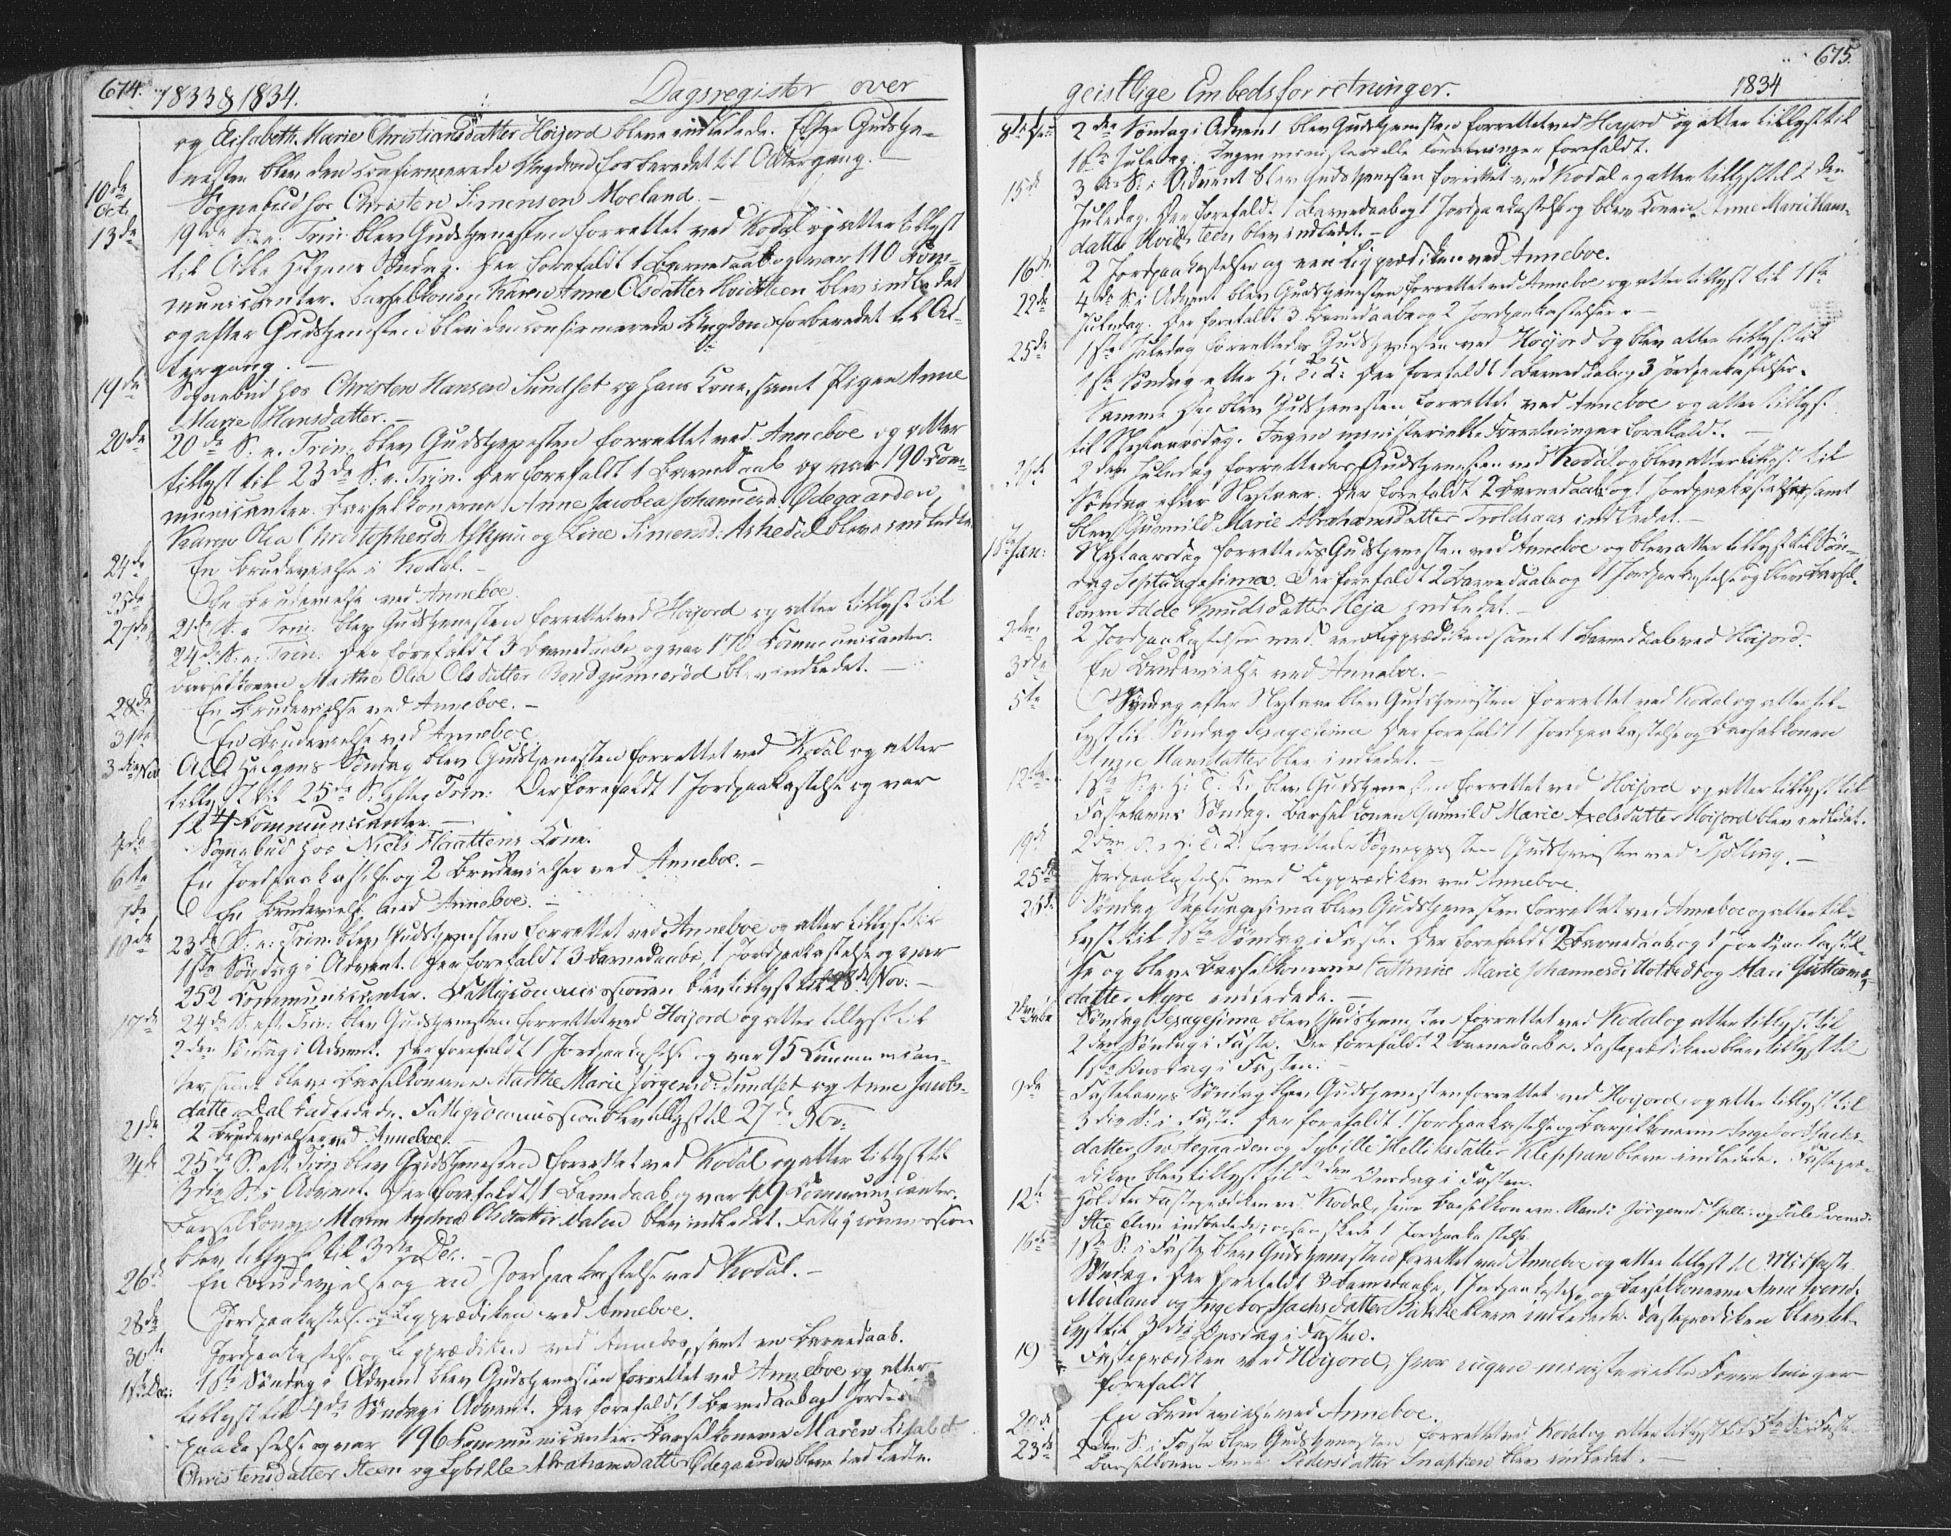 674. 1833 & 1834. Dagsregister over
og Elisabeth Marie Christiansdatter Höijord bleve indledede. Efter Gudstje-
nesten blev den confirmerede Ungdom forberedet til Altergang. —
10de Oct. Sognebud hos Christen Simensen Moeland. —
13de 19de S. e. Trin. blev Gudstjenesten forrettet ved Kodal og atter tillyst
til Alle Helgens Söndag. Der forefaldt 1 Barnedaab og var 110 Com-
municanter. Barselkonen Karen Anne Olsdatter Hvidsteen blev indledet
og efter Gudstjenesten blev den confirmerede Ungdom forberedet til Al-
tergang. —
19de Sognebud hos Christen Hansen Sundset og hans Kone, samt Pigen Anne
Marie Hansdatter. —
20de 20de S. e. Trin: blev Gudstjenesten forrettet ved Anneboe og atter
tillyst til 23de S. e. Trin. Der forefaldt 1 Barnedaab og var 190 Com-
municanter. Barselkonerne Anne Jacobea Johannesd. Ödegaarden,
Karen Olia Christophersd. og Line Simensd: Askedal bleve indledede.
24de En Brudevielse i Kodal. —
25de En Brudevielse ved Anneboe.
27de 21de S. e. Trin. blev Gudstjenesten forrettet ved Höijord og atter tillyst til
24de S. e. Trin. Der forefaldt 3 Barnedaabe og var 170 Communicanter.
Barselkonen Marthe Olia Olsdatter blev indledet. —
28de En Brudevielse ved Anneboe. —
31te En Brudevielse ved Anneboe
3die Nov. Alle Helgens Söndag blev Gudstjenesten forrettet ved Kodal og atter
tillyst til 25de S. efter Trin: Der forefaldt 1 Jordpaakastelse og var
124 Communicanter. —
4de Sognebud hos Niels Flaattens Kone.
6te En Jordpaakastelse og 2 Brudevielser ved Anneboe. —
7de En Brudevielse ved Anneboe. —
10de 23de S. e: Trin. blev Gudstjenesten forrettet ved Anneboe og atter tillyst til
1ste Söndag i Advent. Der forefaldt 3 Barnedaabe, 1 Jordpaakastelse og var
252 Communicanter. Fattigcommissionen blev tillyst til 28de Nov. —
17de 24de S. eft. Trin: blev Gudstjenesten forrettet ved Höijord og atter tillyst til
2den Söndag i Advent. Der forefaldt 1 Jordpaakastelse og var 95 Communican-
ter, samt bleve Barselkonerne Marthe Marie Jörgensd: Sundset og Anne Jacobs-
datter Dal indledede. Fattigcommission blev tillyst til 27de Nov:
21de 2 Brudevielser ved Anneboe. —
24de 25de S. eft. Trin blev Gudstjenesten forrettet ved Kodal og atter tillyst til
3die S. i Advent. Der forefaldt 1 Barnedaab og var 49 Communicanter.
Barselkonen Maren Andrea Olsdatter Dalen blev indledet. Fattigcommission
blev tillyst til 3die Dec. —
26de En Brudevielse og en Jordpaakastelse ved Kodal. —
28de Jordpaakastelse og Ligprædiken ved Anneboe.
30te Jordpaakastelse og Ligprædiken ved Anneboe, samt en Barnedaab.
1ste Dec: 1ste Söndag i Advent blev Gudstjenesten forrettet ved Anneboe og atter
tillyst til 4de Söndag i Advent. Der forefaldt 1 Barnedaab og 1 Jord-
paakastelse og var 196 Communicanter. Barselkonerne Maren Lisabet
Christensdatter Steen og Sybille Abrahamsdatter Ödegaarden bleve indledede.
geistlige Embedsforretninger. 1834 675.
8de Dec: 2den Söndag i Advent blev Gudstjenesten forrettet ved Höijord og atter tillyst til
1ste Juledag. Ingen ministerielle Forretninger forefaldt.
15de 3die S. i Advent blev Gudstjenesten forrettet ved Kodal og atter tillyst til 2den
Juledag. Der forefaldt 1 Barnedaab og 1 Jordpaakastelse og blev Konen Anne Marie Hans-
datter Hvidsteen blev indledet. —
16de 2 Jordpaakastelser og een Ligprædiken ved Anneboe.
22de 4de S. i Advent blev Gudstjenesten forrettet ved Anneboe og atter tillyst til 1ste
Juledag. Der forefaldt 3 Barnedaabe og 2 Jordpaakastelser. —
25de 1ste Juledag forrettedes Gudstjenesten ved Höijord og blev atter tillyst til
1ste Söndag efter H. 3 K. Der forefaldt 1 Barnedaab og 3 Jordpaakastelser.
Samme Dag blev Gudstjenesten forrettet ved Anneboe og atter tillyst
til Nytaarsdag. Ingen ministerielle Forretninger forefaldt. —
26de 2den Juledag forrettedes Gudstjenesten ved Kodal og blev atter tillyst til
Söndag efter Nytaar. Der forefaldt 2 Barnedaab og 1 Jordpaakastelse, samt
blev Gunnild Marie Abrahamsdatter Troldsaas indledet. —
1ste Jan: Nytaarsdag forrettedes Gudstjenesten ved Anneboe og blev atter tillyst til Sön-
dag Septuagesima. Der forefaldt 2 Barnedaabe og 1 Jordpaakastelse og blev Barsel-
konen Knudsdatter Heja indledet. —
2den 2 Jordpaakastelser med een Ligprædiken samt 1 Barnedaab ved Höijord.
3die En Brudevielse ved Anneboe. —
5te Söndag efter Nytaar blev Gudstjenesten forrettet ved Kodal og atter til-
lyst til Söndag Sexagesima. Der forefaldt 1 Jordpaakastelse og Barselkonen
Hansdatter blev indledet. —
12te 1ste S. e. H. 3 K. blev Gudstjenesten forrettet ved Höijord og atter tillyst til
Fastelavns Söndag. Barselkonen Gunnild Marie Axelsdatter Höijord blev indledet.
19de 2den S. e H. 3 K. forrettede Sognepræsten Gudstjenesten ved Tjölling. —
25de Jordpaakastelse med Ligprædiken ved Anneboe.
26de Söndag Septuagesima blev Gudstjenesten forrettet ved Anneboe og atter til-
lyst til 1ste Söndag i Faste. Der forefaldt 2 Barnedaab og 1 Jordpaakastel-
se og bleve Barselkonerne Cathrine Marie Johannesd. og Mari Guttorms-
datter Myre indledede. —
2den Febr Söndag Sexagesima blev Gudstjenesten forrettet ved Kodal og atter tillyst til
2den Söndag i Faste. Der forefaldt 2 Barnedaabe. Fasteprædiken blev tillyst til
1ste Onsdag i Fasten. —
9de Fastelavns Söndag blev Gudstjenesten forrettet ved Höijord og atter tillyst til
3die S. i Faste. Der forefaldt 1 Jordpaakastelse og Barselkonerne Ingebor
datter og Sybille Helliksdatter Kleppan bleve indledede. Fastepræ-
diken blev tillyst til 2den Onsdag i Fasten.
12te Holdtes Fasteprædiken ved Kodal, hvor Barselkonerne Randi Jörgensd. og
bleve indledede; ogsaa skede 1 Jordpaakastelse.
16de 1ste S. i Faste blev Gudstjenesten forrettet ved Anneboe og atter tillyst til Midfaste
Söndag. Der forefaldt 3 Barnedaabe, 1 Jordpaakastelse og Barselkonerne Anne
Moeland og Ingebor Isachsdatter Bakke bleve indledede. Fasteprædiken blev til-
lyst til 3die Onsdag i Fasten.
19 Fasteprædiken ved Höijord, hvor ingen ministerielle Forretninger
forefaldt
20de En Brudevielse ved Anneboe.
23de 2den S. i Faste blev Gudstjenesten forrettet ved Kodal og atter tillyst til 5te S. i Faste
Barselkonen Anne Pedersdatter Snapsen blev indledet. —